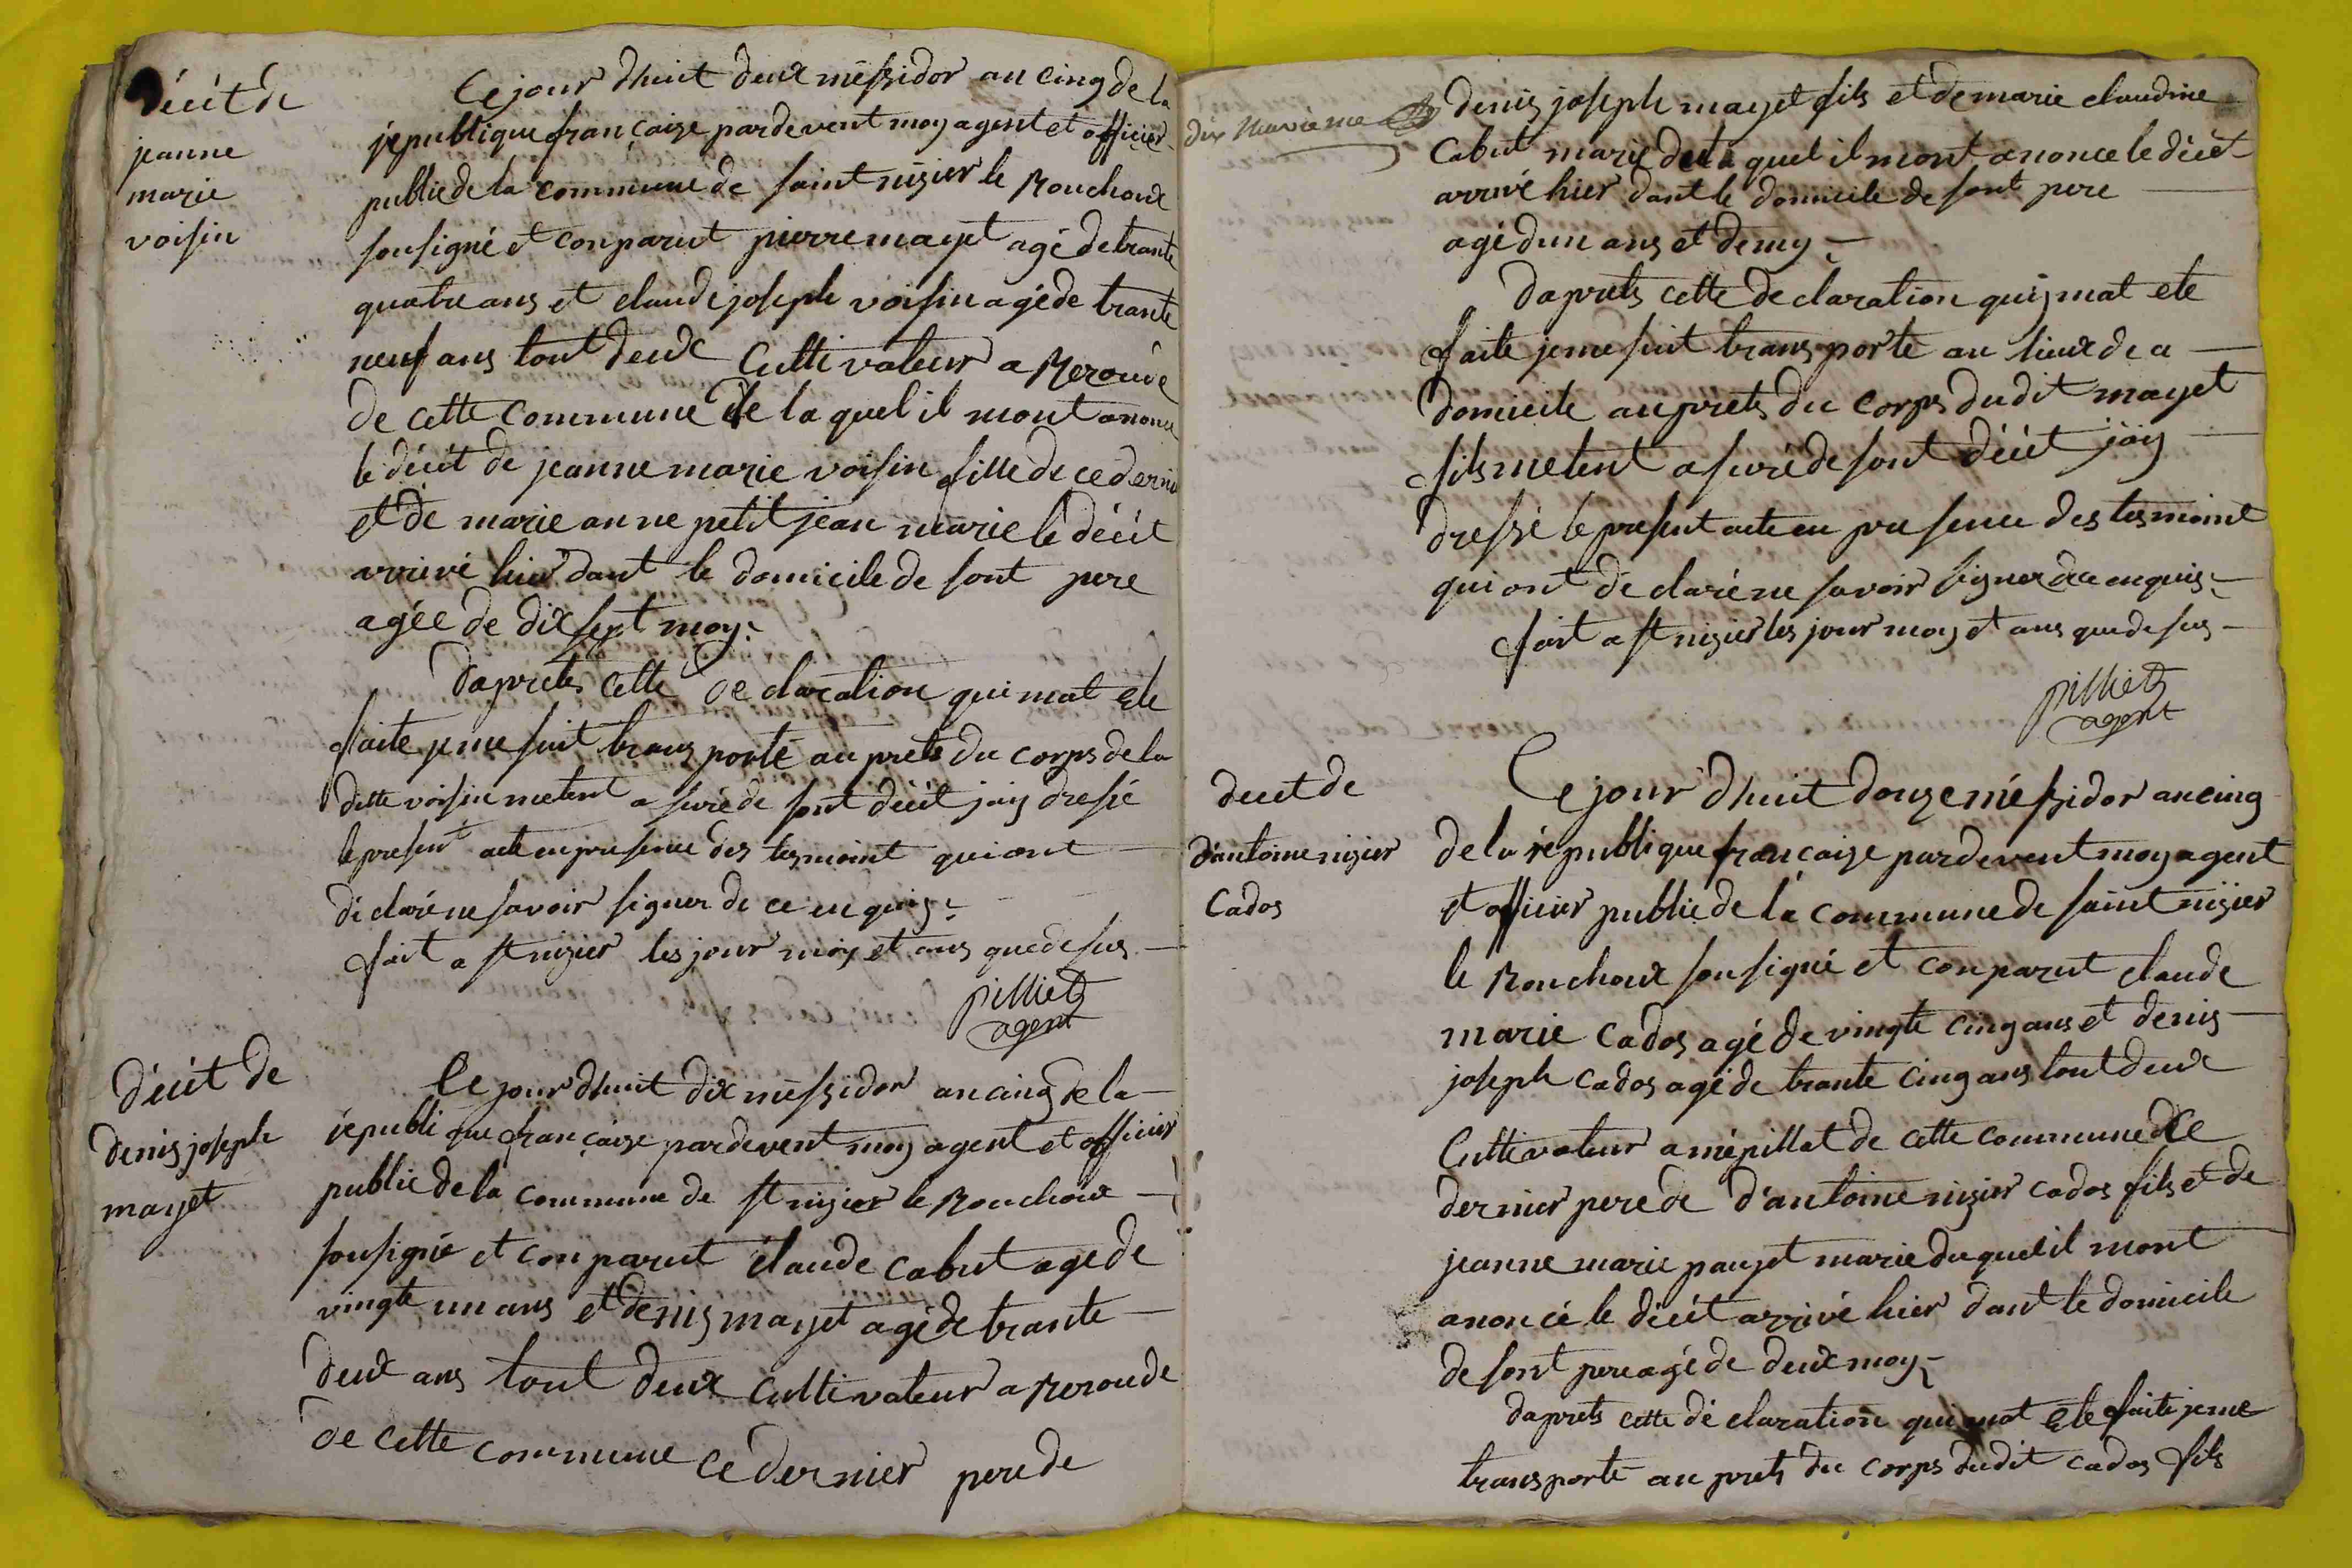 décit de
jeanne
marie
voisin
Ce jour dhuit deuxméssidor an cinq de la
républiquefrançaize pardevent moy agent et officier
public de la commune de saint nizier le Bouchoux
sousigné et conparut pierre mayet agé de trante
quatre ans et claude joseph voisin agé de trante
neuf ans tout deux Cultivateur a Meroude
de cette commune de la quel il mont anoncé
le décit de jeanne marie voisin fille de ce dernier
et de marie anne petit jean marie le décit
arrivé hier dant le domicile de sont pere
agée de dix sept moy.
Daprets cette declaration qui mat ete
faite je me suit transporté au prets du corps de la
ditte voisin metent asuré de sont décit jaiy dressé
le present acte en presence des tesmoint qui ont
déclaré ne savoir signer de ce enquis.
fait a st nizier les jour moy et ans que desus
pilliet
agent
décit de
denis joseph
mayet
Ce jour dhuit dix méssidor an cinq de la
république françaize pardevent moy agent et officier
public de la commune de st nizier le Bouchoux
sousigné et conparut claude cabut age de
vingte un ans et denis mayet agé de trante
deux ans tout deux cultivateur a Meroude
de cette commune ce dernier pere de
dix neuvieme
denis joseph mayet fils et de marie claudine
Cabut marié de la quel il mont anonce le décit
arrivé hier dant le domicile de sont pere
agé dun ans et demy
Daprets cette declaration quiy mat ete
faite je me suit transporté au lieux de a
domicile au prets du corps dudit mayet
fils metent asuré de sont décit jaiy
dressé le present acte en presence des tesmoint
qui ont déclaré ne savoir signer de ce enquis
fait a st nizier les jour moy et ans que desus
pilliet
agent
decit de
d'antoine nizier
Cados
Ce jour dhuit douze méssidor an cinq
de la république françaize pardevent moy agent
et officier public de la commune de saint nizier
le Bouchoux sousigné et conparut claude
marie Cados agé de vingte cinq ans et denis
joseph cados agé de trante cinq ans tout deux
Cultivateur a mépillat de cette commune Ce
dernier pere de d'antoine nizier cados fils et de
jeanne marie paujet marie du quel il mont
anoncé le décit arrivé hier dant le domicile
de sont pere agé de deux moy
daprets cette déclaration qui mat ete faite je me
transporté au prets du corps dudit cados fils